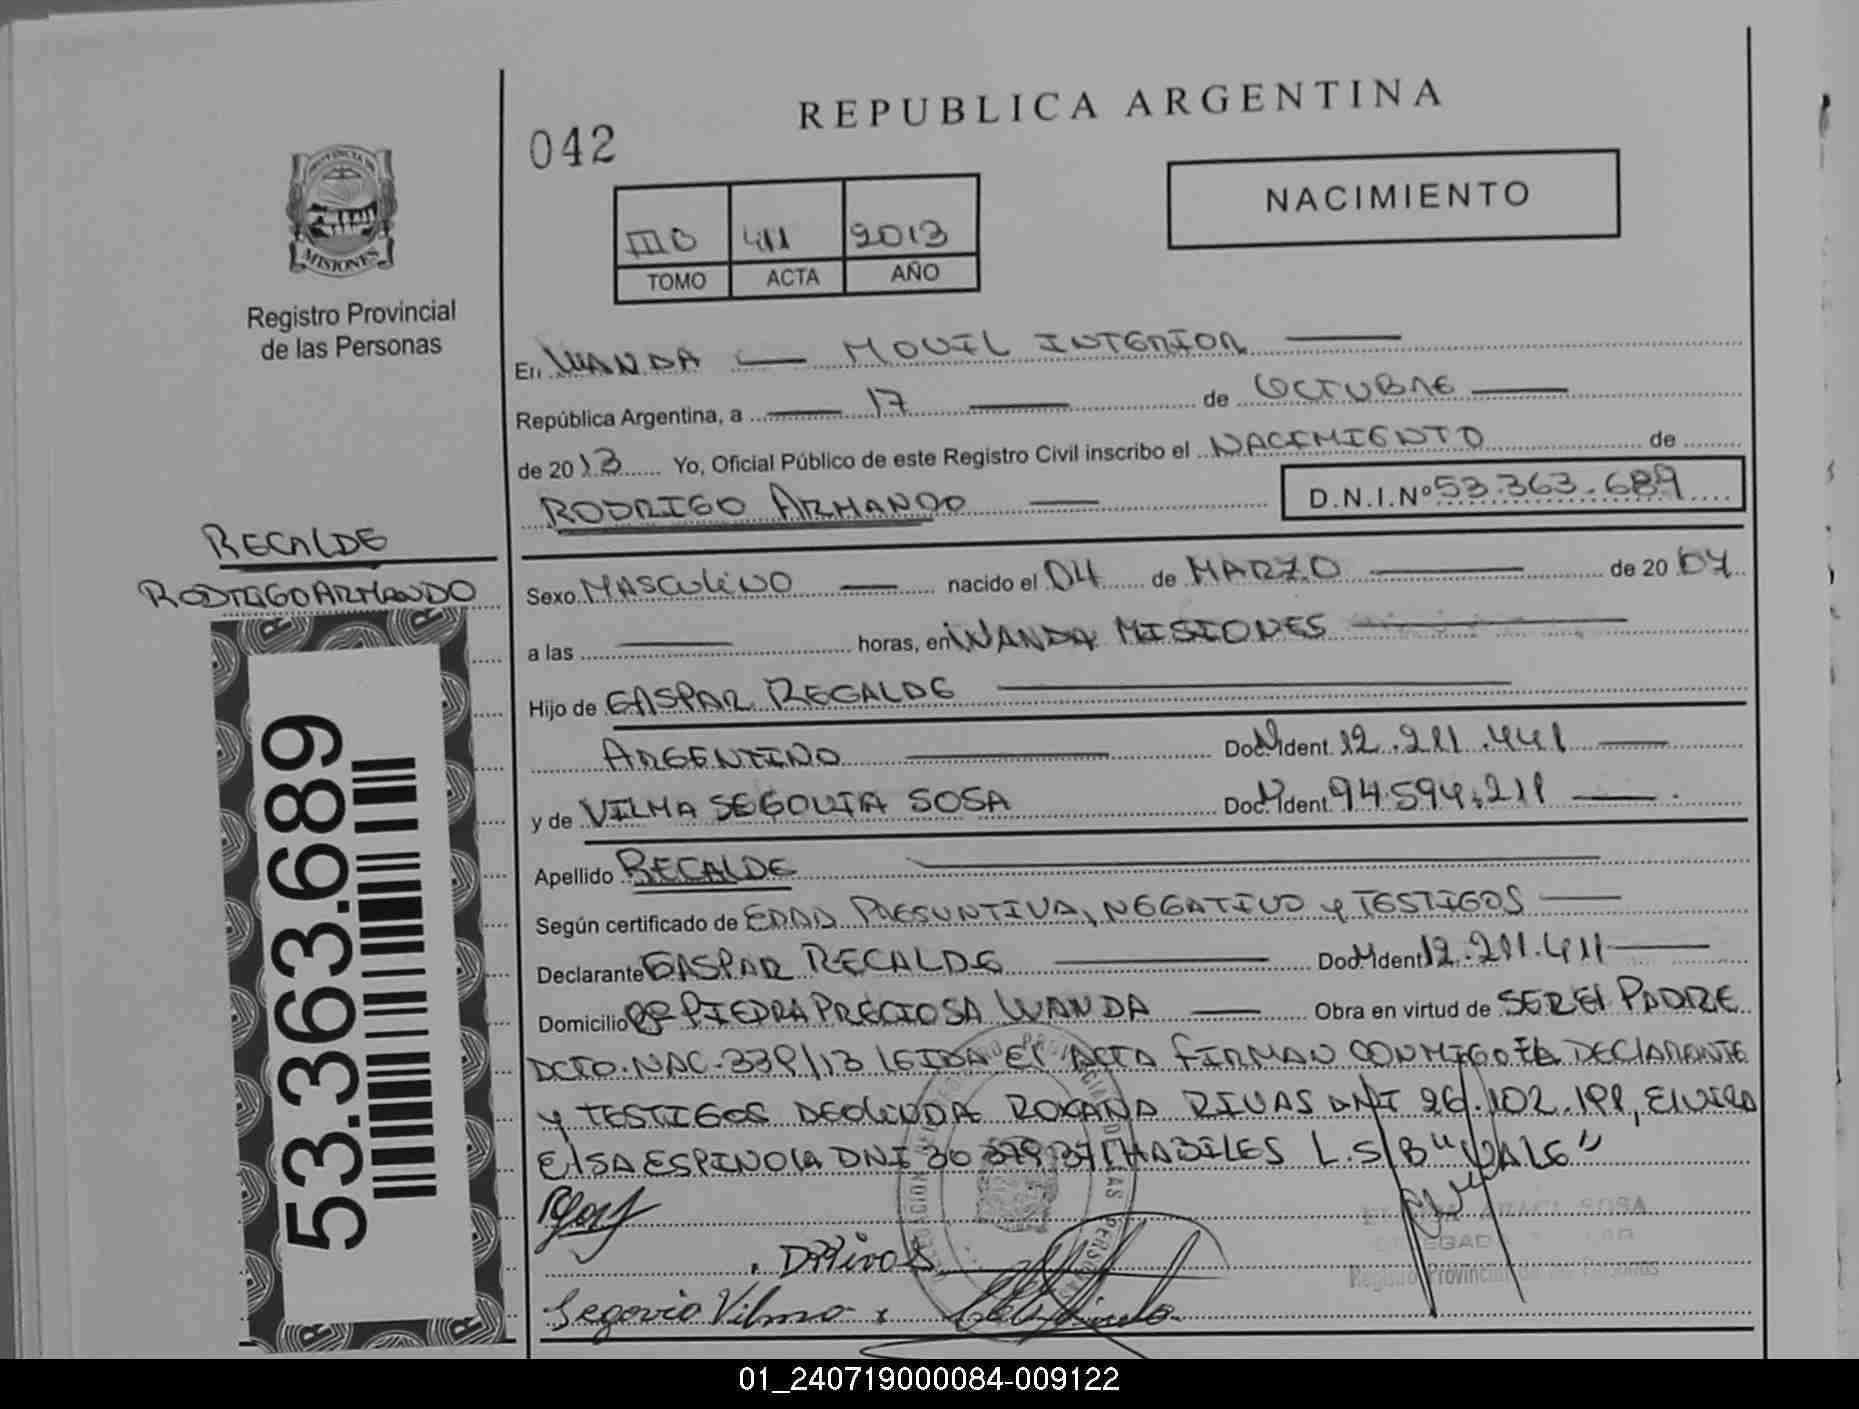 REPUBLICA ARGENTINA
042
NACIMIENTO
PROVINCIA DE
MISIONES
Registro Provincial
de las Personas
III D 411 2013
TOMO ACTA AÑO
En WANDA — MOVIL INTERIOR —
República Argentina, a — 17 — de OCTUBRE —
de 2013 Yo, Oficial Público de este Registro Civil inscribo el NACIMIENTO de
RODRIGO ARMANDO — D.N.I.Nº 53.363.689
RECALDE
RODRIGO ARMANDO
Sexo MASCULINO — nacido el 04 de MARZO — de 2004
a las — horas, en WANDA MISIONES —
Hijo de GASPAR RECALDE —
ARGENTINO — Doc. Ident. 12.211.441 —
y de VILMA SEGOVIA SOSA Doc. Ident. 94.594.211 —
Apellido RECALDE —
Según certificado de EDAD PRESUNTIVA, NEGATIVO y TESTIGOS —
Declarante GASPAR RECALDE — Doc. Ident. 12.211.411 —
Domicilio Bº PIEDRA PRECIOSA WANDA — Obra en virtud de SER EL PADRE
DCTO. NAC. 339/13 LEIDA EL ACTA FIRMAN CONMIGO EL DECLARANTE
y TESTIGOS DEOLINDA ROXANA RIVAS DNI 26.102.199, ELVIRA
ELSA ESPINOLA DNI 30 379 37 HABILES L.S/B "VALE"
DRivas
Segovia Vilma x
SOSA
Registro Provincial de las Personas
53.363.689
01_240719000084-009122